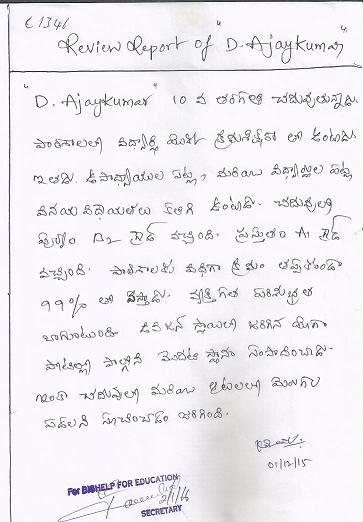 C 1341
"Review Report of "D. Ajaykumar"
"D. Ajaykumar" 10 వ తరగతి చదువుతున్నాడు.
పాఠశాలలో విద్యార్థి మంచి క్రమశిక్షణ తో ఉంటాడు.
ఇతడు ఉపాధ్యాయుల పట్ల, మరియు విద్యార్థుల పట్ల
వినయ విధేయతలు కలిగి ఉంటాడు. చదువులో
పూర్వం B2 గ్రేడ్ వచ్చింది. ప్రస్తుతం A1 గ్రేడ్
వచ్చింది. పాఠశాలకు విధిగా క్రమం తప్పకుండా
99% తో వస్తాడు. వ్యక్తిగత పరిశుభ్రత
బాగుంటుంది డివిజన్ స్థాయిలో జరిగిన యోగా
పోటీల్లో పాల్గొని మొదటి స్థానం సంపాదించాడు.
ఇంకా చదువులో మరియు ఆటలలో ముందుకు
వెళ్లాలని సూచించడం జరిగింది.
01/12/15
For BIGHELP FOR EDUCATION
2/1/16
SECRETARY